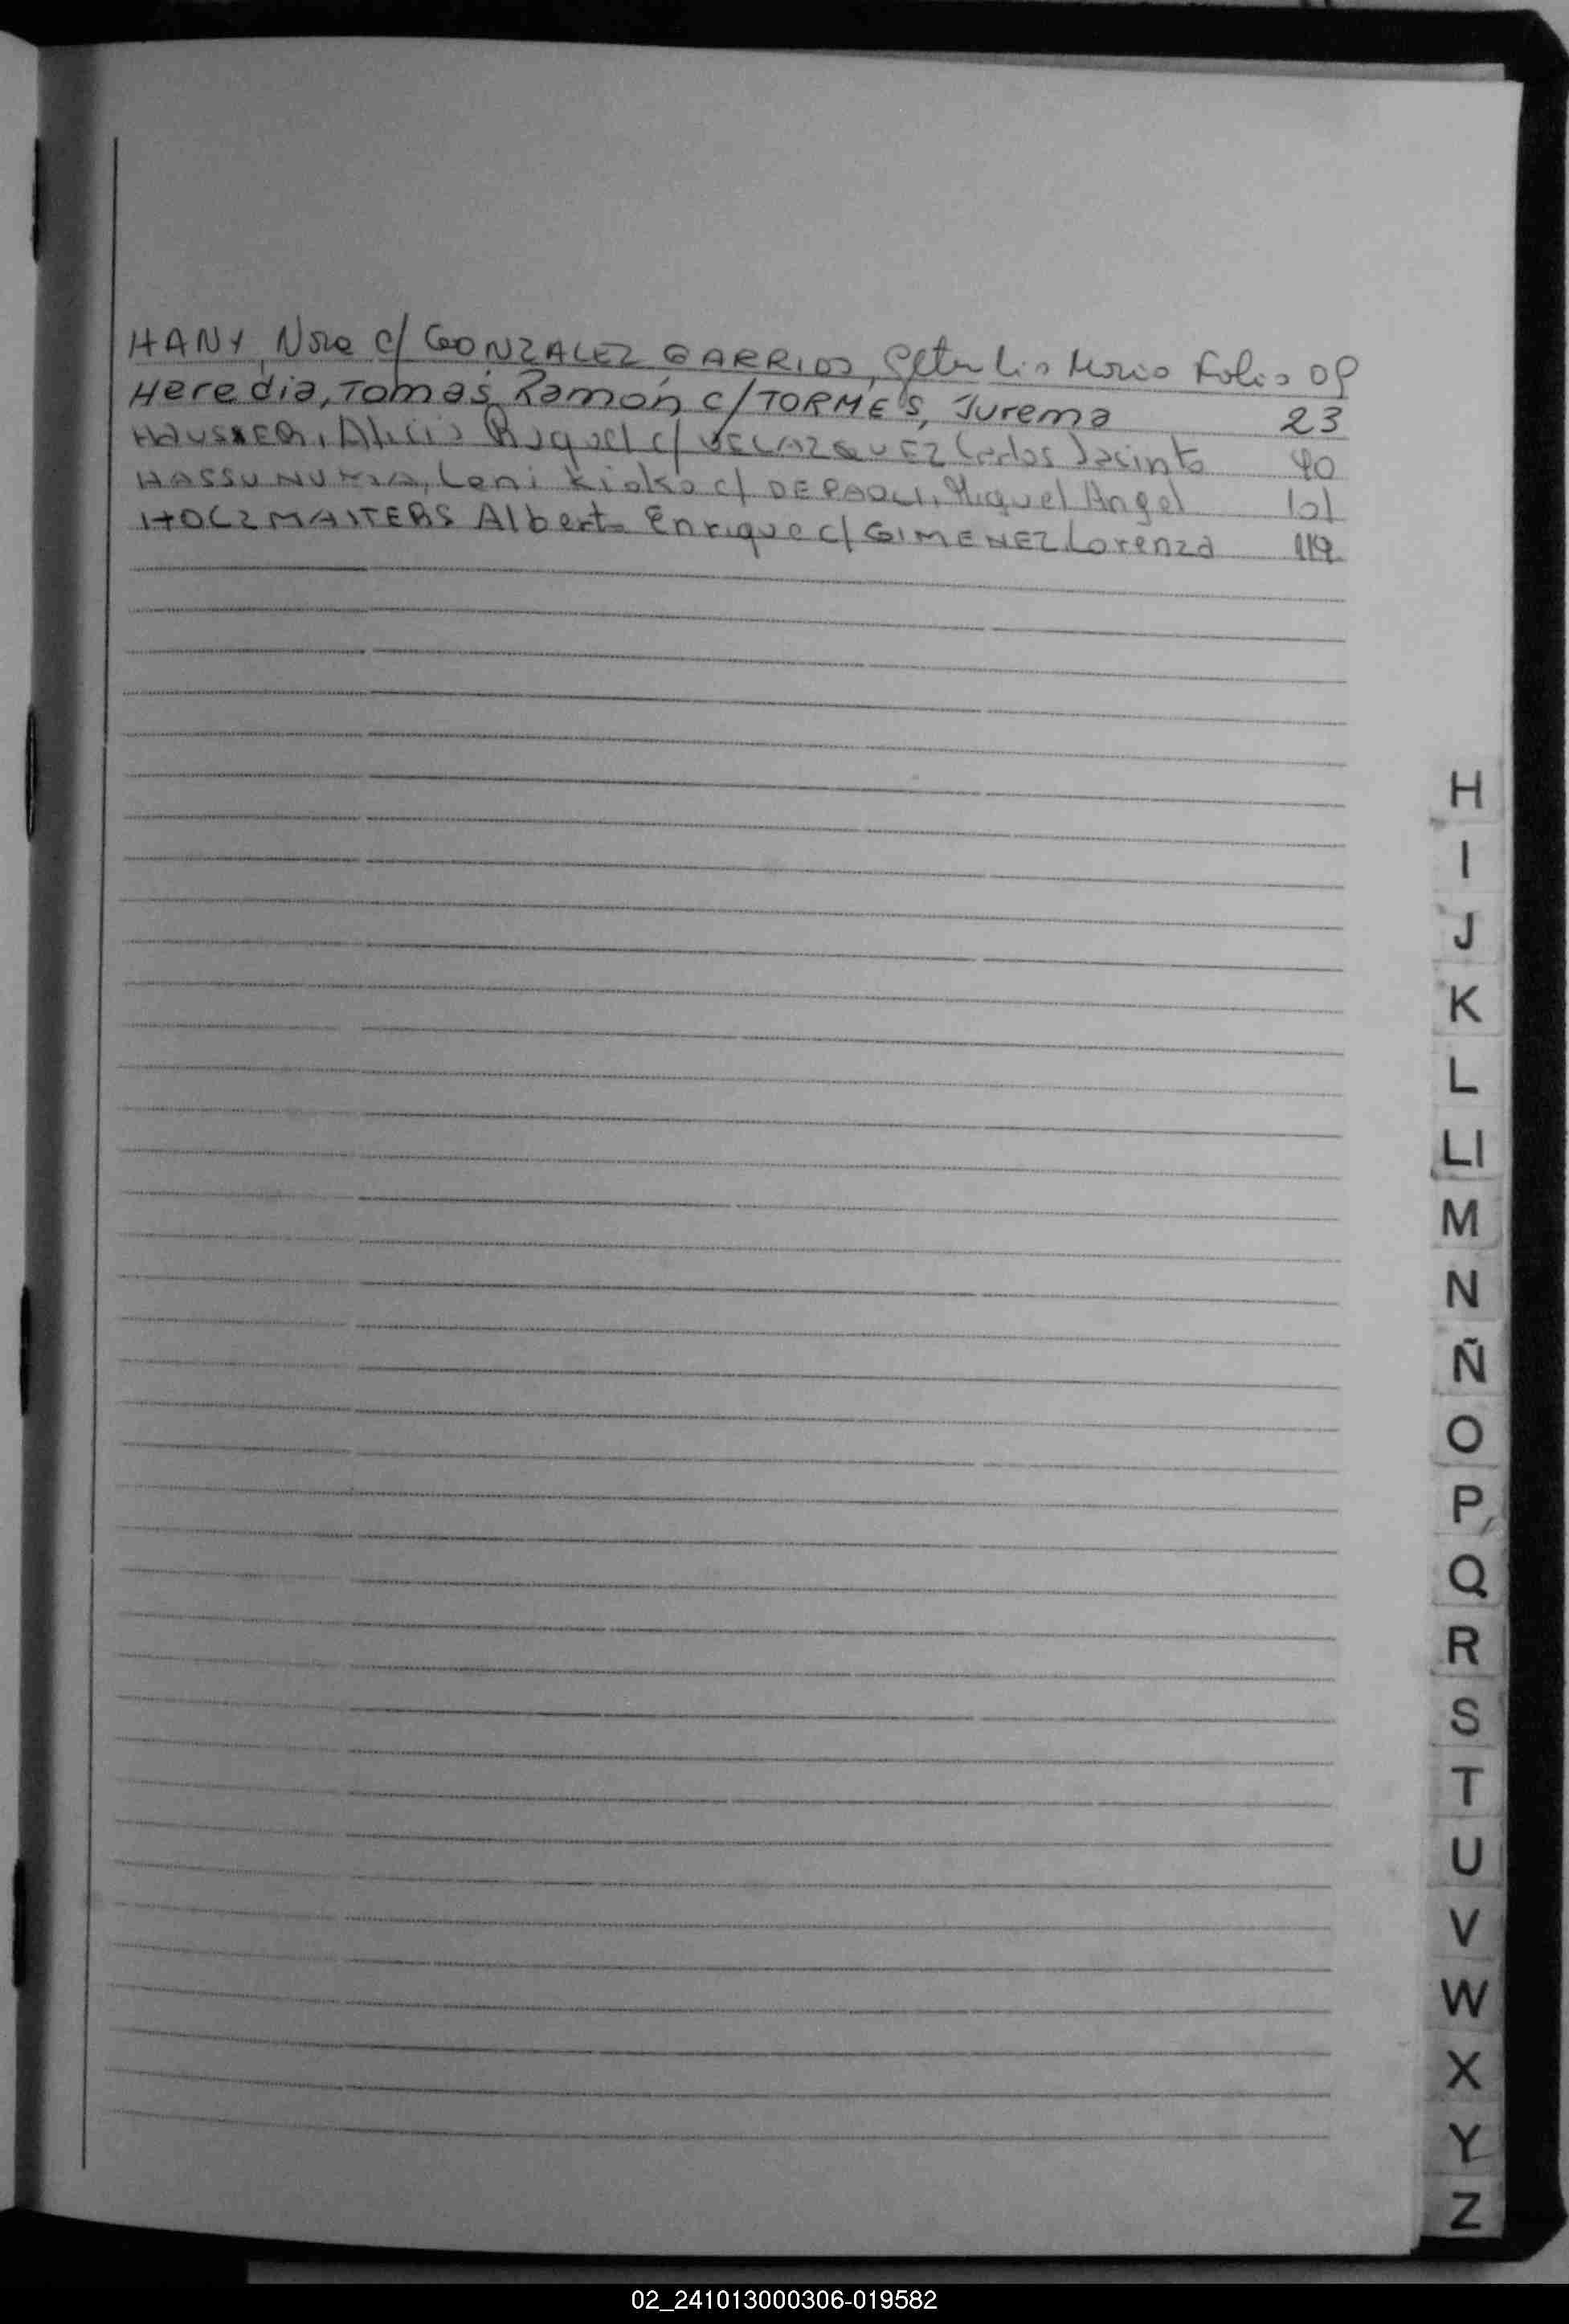 HANY, Nora c/ GONZALEZ GARRIDO, Getulio Mario Folio 09
Heredia, Tomas Ramón c/ TORMES, Jurema 23
HAUSKER, Alicia Raquel c/ VELAZQUEZ Carlos Jacinto 40
Leni Kioko c/ DEPAOLI, Miguel Angel 101
HOLZMAITERS Alberto Enrique c/ GIMENEZ Lorenza 119
H
I
J
K
L
Ll
M
N
Ñ
O
P
Q
R
S
T
U
V
W
X
Y
Z
02_241013000306-019582